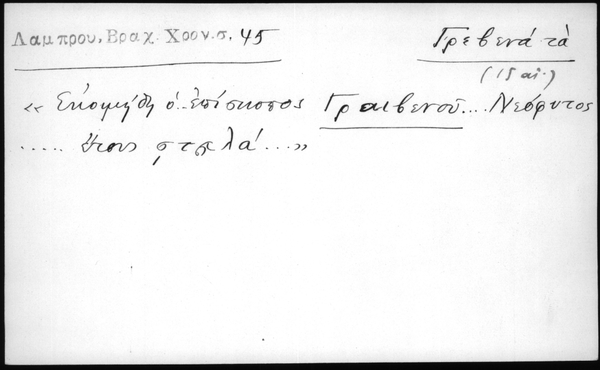 Λαμπρου, Βραχ. Χρον. σ. 45
Γρεβενά τὰ
(15 αἰ.)
« Ἐκοιμήθη ὁ.. ἐπίσκοπος Γραιβενοῦ.... Νεόφυτος
..... ἔτους ϛ τλα΄...»